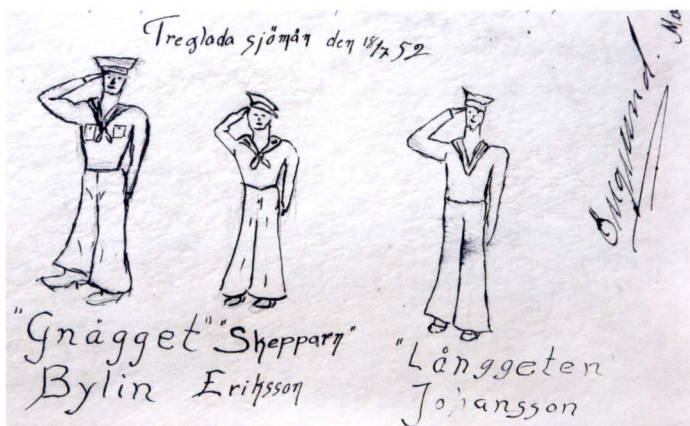 Treglada sjömän den 18/7 52
"Gnägget"
Bylin
"Skepparn"
Eriksson
"Långgeten
Johansson